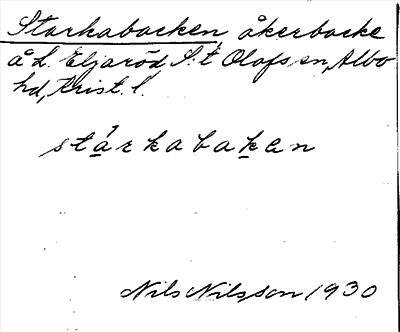 Starkabacken åkerbacke
å L. Eljaröd, S:t Olofs sn, Albo
hd, Krist. l.
stárkabaken
Nils Nilsson 1930